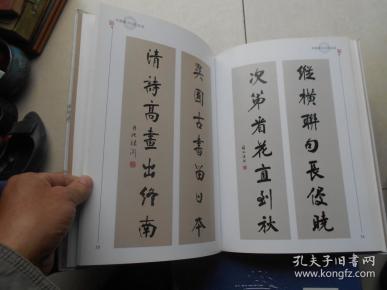 縱橫聯句長侵曉
次第看花直到秋
異國古書留日本
清詩高畫出終南
孔夫子旧书网
www.kongfz.com